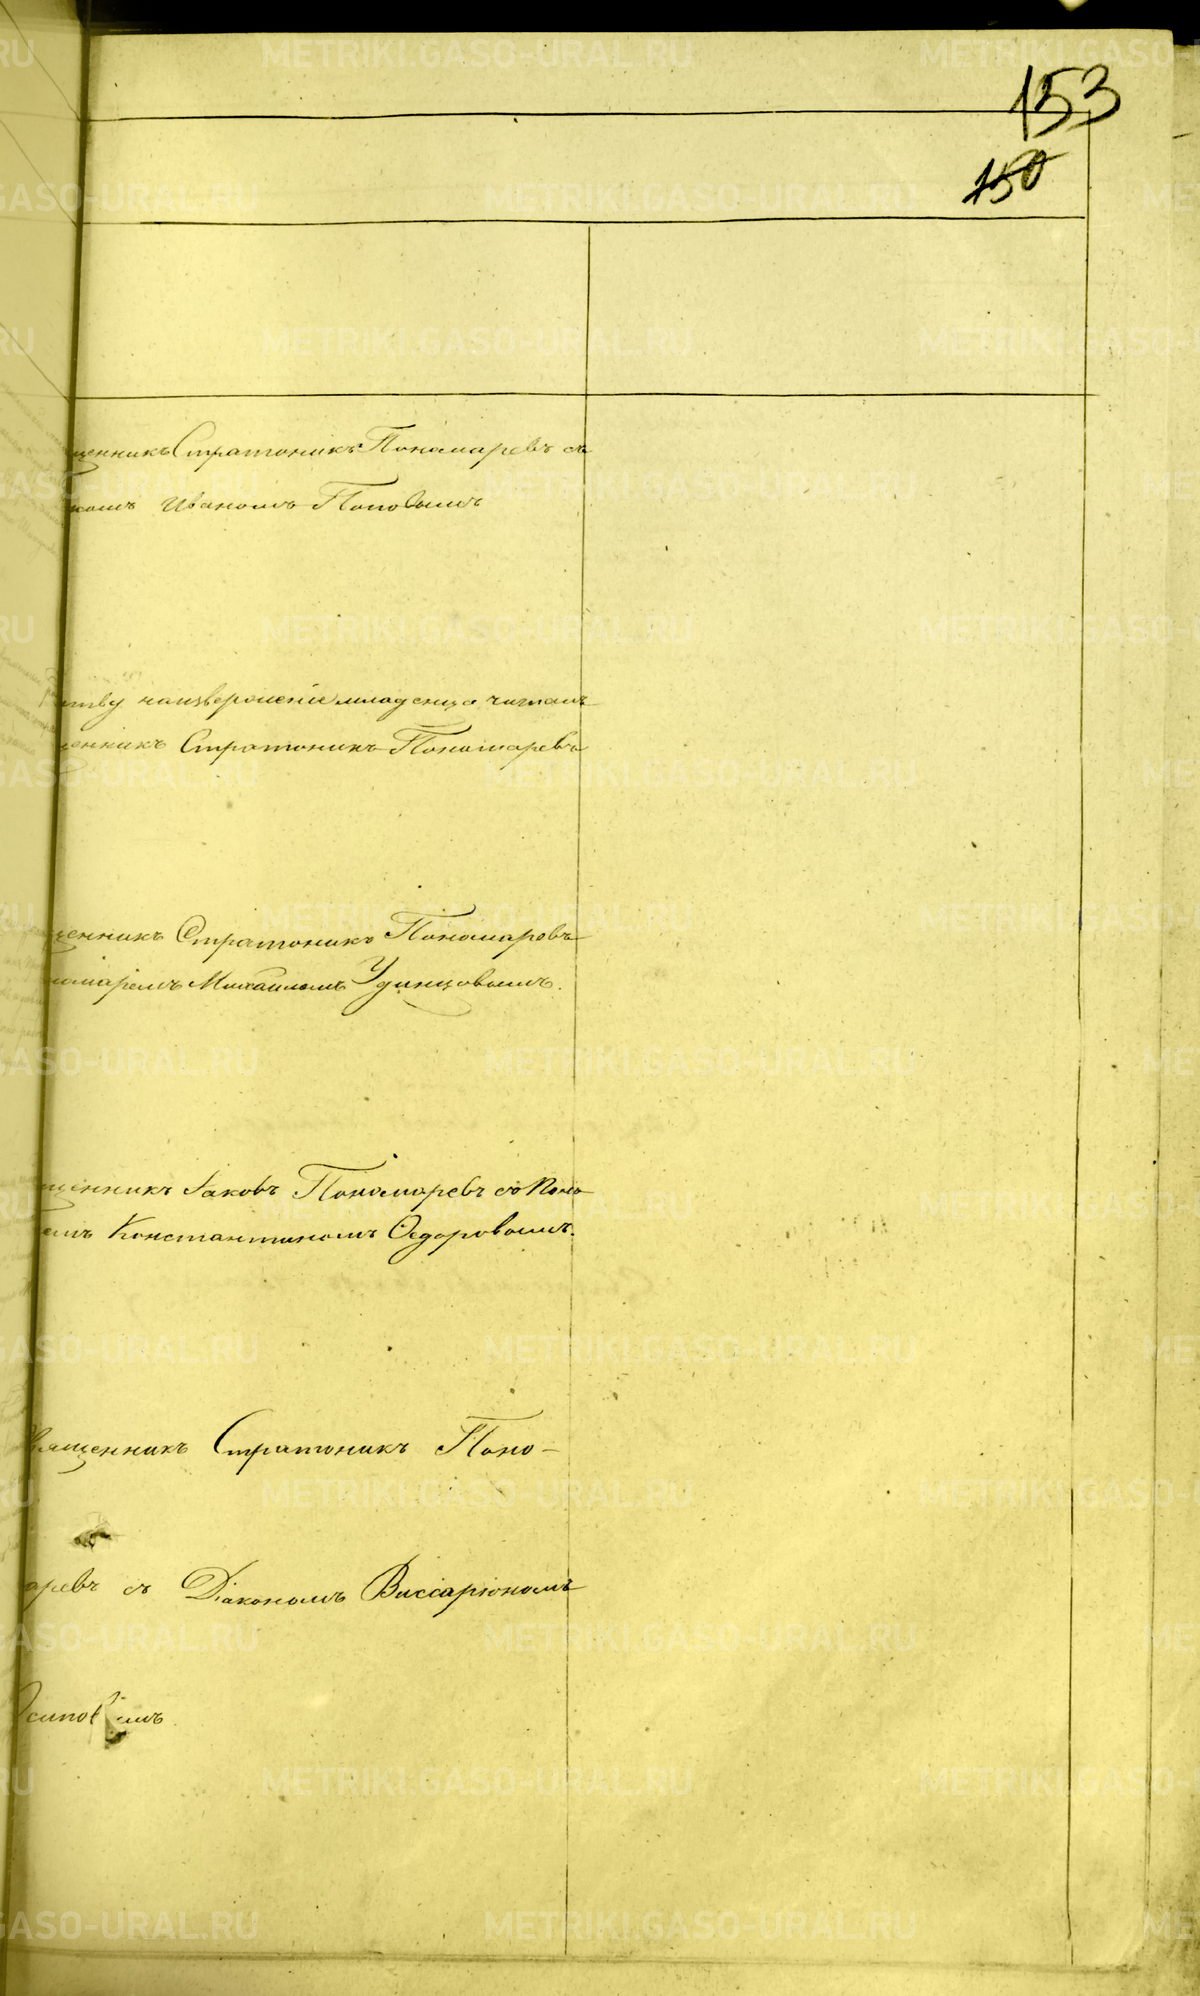 153
150
щенникъ Стратоникъ Пономаревъ съ
комъ Иваномъ Поповымъ
итву наизвержение младенца читалъ
щенникъ Стратоникъ Пономаревъ
щенникъ Стратоникъ Пономаревъ
номаремъ Михаиломъ Удинцовымъ.
щенникъ Іаковъ Пономаревъ съ Поно
емъ Константиномъ Ѳедоровымъ.
Священникъ Стратоникъ Поно-
аревъ съ Діакономъ Виссаріономъ
Осиповымъ
METRIKI.GASO-URAL.RU